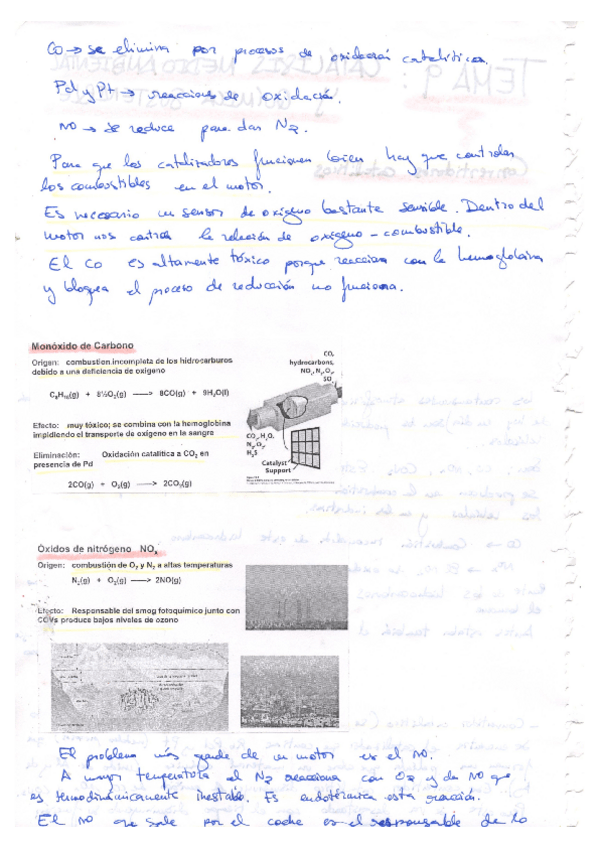 CO → se elimina por procesos de oxidación catalíticas.
Pd y Pt → reacciones de oxidación.
NO → se reduce para dar N2.
Para que los catalizadores funcionen bien hay que controlar
los combustibles en el motor.
Es necesario un sensor de oxígeno bastante sensible. Dentro del
motor nos controla la relación de oxígeno - combustible.
El CO es altamente tóxico porque reacciona con la hemoglobina
y bloquea el proceso de reducción no funciona.
Monóxido de Carbono
Origen: combustion incompleta de los hidrocarburos
debido a una deficiencia de oxígeno
C8H18(g) + 8½O2(g) ⟶ 8CO(g) + 9H2O(l)
Efecto: muy tóxico; se combina con la hemoglobina
impidiendo el transporte de oxígeno en la sangre
Eliminación: Oxidación catalítica a CO2 en
presencia de Pd
2CO(g) + O2(g) ⟶ 2CO2(g)
CO,
hydrocarbons,
NOx, N2, O2,
SO2
CO2, H2O,
N2, O2,
H2S
Catalyst
Support
Óxidos de nitrógeno NOx
Origen: combustión de O2 y N2 a altas temperaturas
N2(g) + O2(g) ⟶ 2NO(g)
Efecto: Responsable del smog fotoquímico junto con
COVs produce bajos niveles de ozono
El problema más grande de un motor es el NO.
A mayor temperatura el N2 reacciona con O2 y da NO que
es termodinámicamente inestable. Es endotérmica esta reacción.
El NO que sale por el coche es el responsable de lo